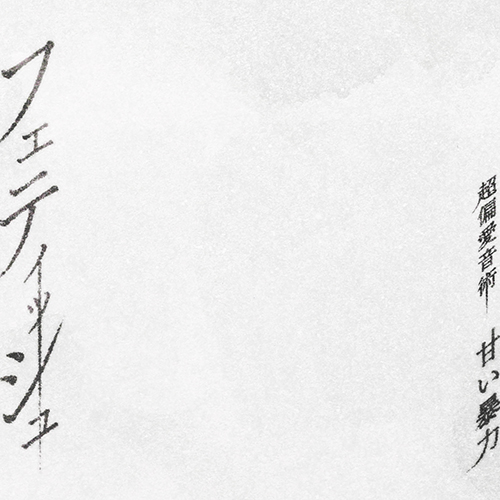 超偏愛音術 甘い暴力
フェティッシュ